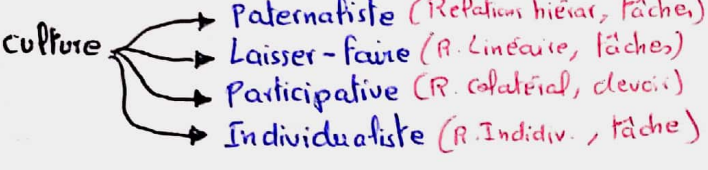 Paternaliste (Relations hiérar, tâches)
culture
Laisser-faire (R. Linéaire, tâches)
Participative (R. colatéral, devoir)
Individualiste (R. Indidiv., tâche)